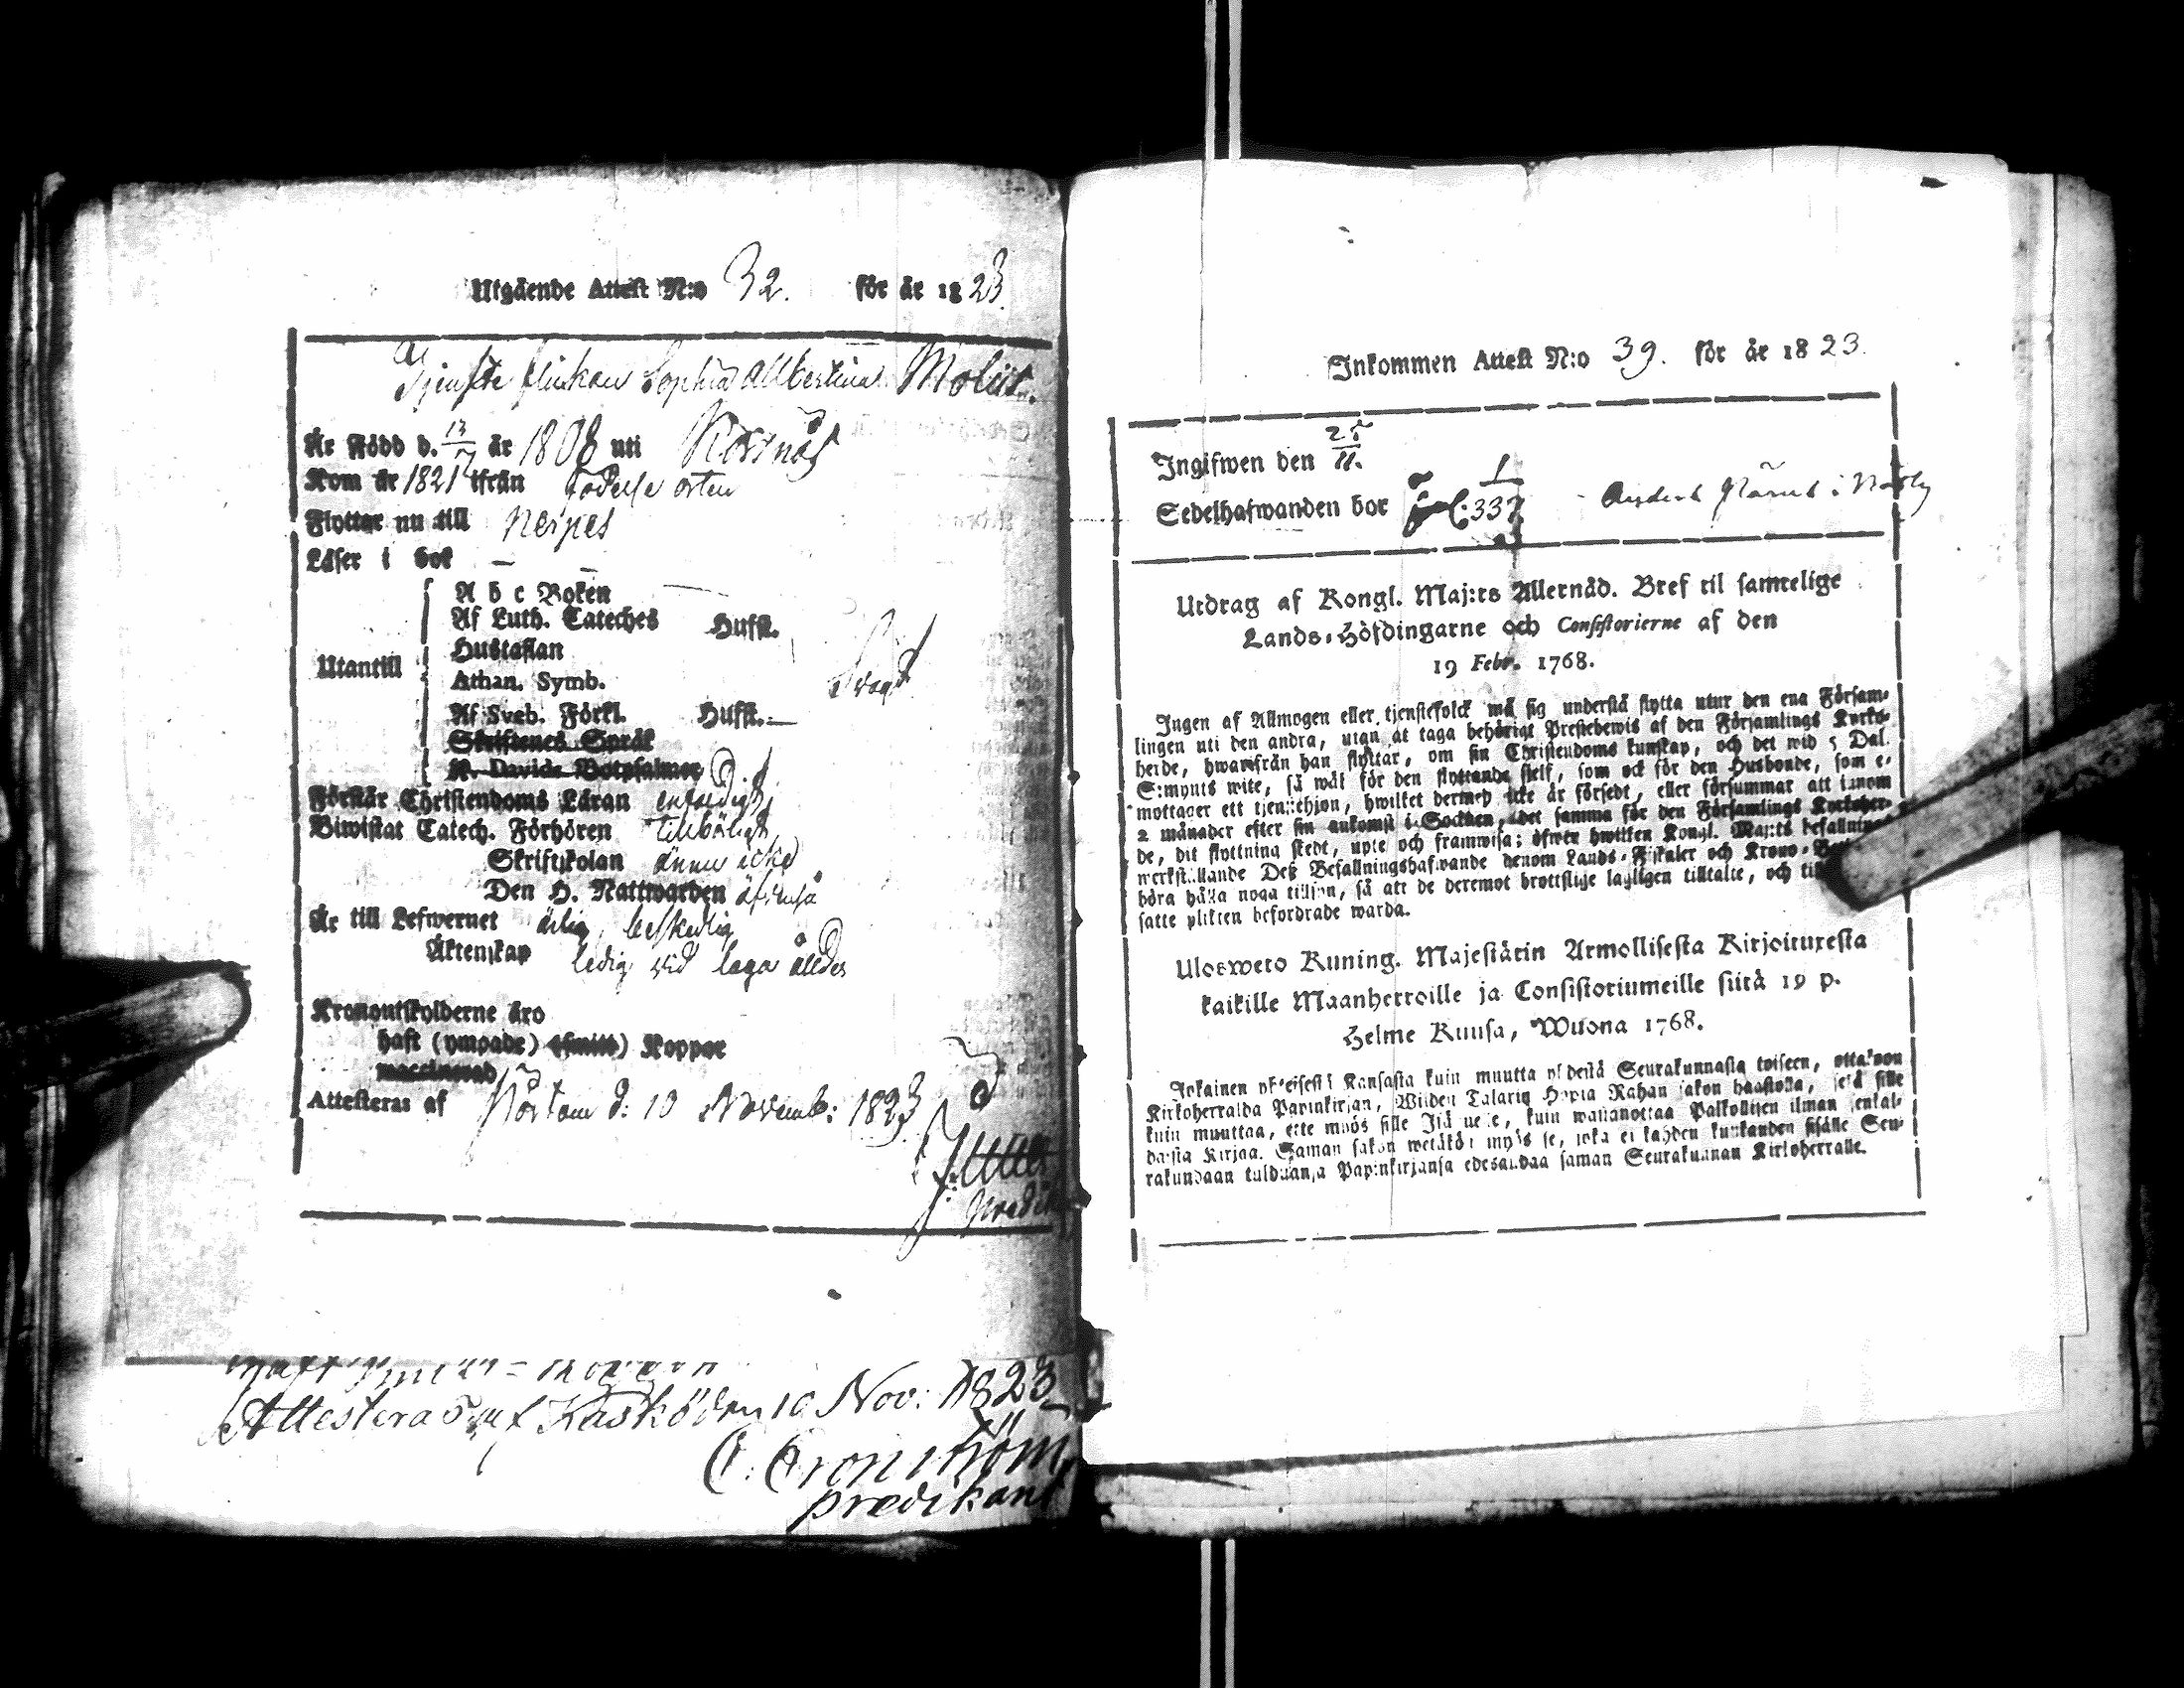 Utgående Attest N:o 32. för år 1823.
Tjenste flickan Sophia Albertina Molin.
Är Född d. 13/7 år 1808 uti Korsnäs
Kom år 1821 ifrån födelse orten
Flyttar nu till Nerpes
Läser i bok —
A b c Boken
Af Luth. Cateches Hufst.
Hustaflan
Utantill
Athan. Symb. Svagt
Af Sveb. Förkl. Hufst. —
Skriftenes Språk
K. Davids Botpsalmer
Förstår Christendoms Läran enfaldigt
Biwistat Catech. Förhören tillbörligt
Skriftskolan ännu icke
Den H. Nattwarden äfvenså
Är till Lefwernet ärlig, beskedlig
Äktenskap ledig vid laga ålder
Kronoutskylderne äro
haft (ympade) (smitt) Koppor
vaccinerad
Attesteras af Nörtom d: 10 Novemb: 1823
Attesteras af Kaskö den 10 Nov: 1823
C. Cronström
prædikant
Inkommen Attest N:o 39. för år 1823.
Ingifwen den 25/11.
Sedelhafwanden bor fol: 337 Anders i Nåsby
Utdrag af Kongl. Maj:ts Allernåd. Bref til samtelige
Lands-Höfdingarne och Consistorierne af den
19 Febr. 1768.
Ingen af Allmogen eller tjenstefolck må sig understå flytta utur den ena Försam-
lingen uti den andra, utan at taga behörigt Prestebewis af den Församlings Kyrko-
herde, hwarifrån han flyttar, om sin Christendoms kunskap, och det wid 5 Dal.
S:mynts wite, så wäl för den flyttande sielf, som ock för den Husbonde, som e-
mottager ett tjenstehjon, hwilket dermed icke är försedt, eller försummar att innom
2 månader efter sin ankomst i Socknen, det samma för den Församlings Kyrkoher-
de, dit flyttning skedt, upte och framwisa; öfwer hwilken Kongl. Maj:ts befallning
werkställande Deß Befallningshafwande genom Lands-Fiskaler och Krono-
böra hålla noga tillsyn, så att de deremot brottslige lagligen tilltalte, och
satte plikten befordrade warda.
Uloswето Kuning. Majestätin Armollisesta Kirjoituxesta
kaikille Maanherroille ja Consistoriumeille siitä 19 p.
Helme Kuusa, Wuona 1768.
Jokainen yhteisestä Kansasta kuin muutta yhdestä Seurakunnasta toiseen, ottakoon
Kirkoherralda Papinkirjan, Wiiden Talarin Hopia Rahan sakon haastolla, sekä sille
kuin muuttaa, ette myös sille Isännelle, kuin wastanottaa Palkollisen ilman senkal-
daista Kirjaa. Saman sakon wetäköt myös se, joka ei kahden kuukauden sisälle Seu-
rakundaan tulduansa Papinkirjansa edesandaa saman Seurakunnan Kirkoherralle.